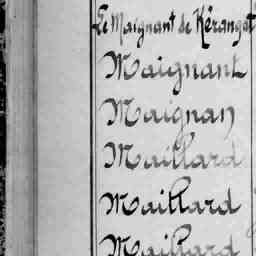 Le Maignant de Kérangat
Maignant
Maignan
Maillard
Maillard
Maillard